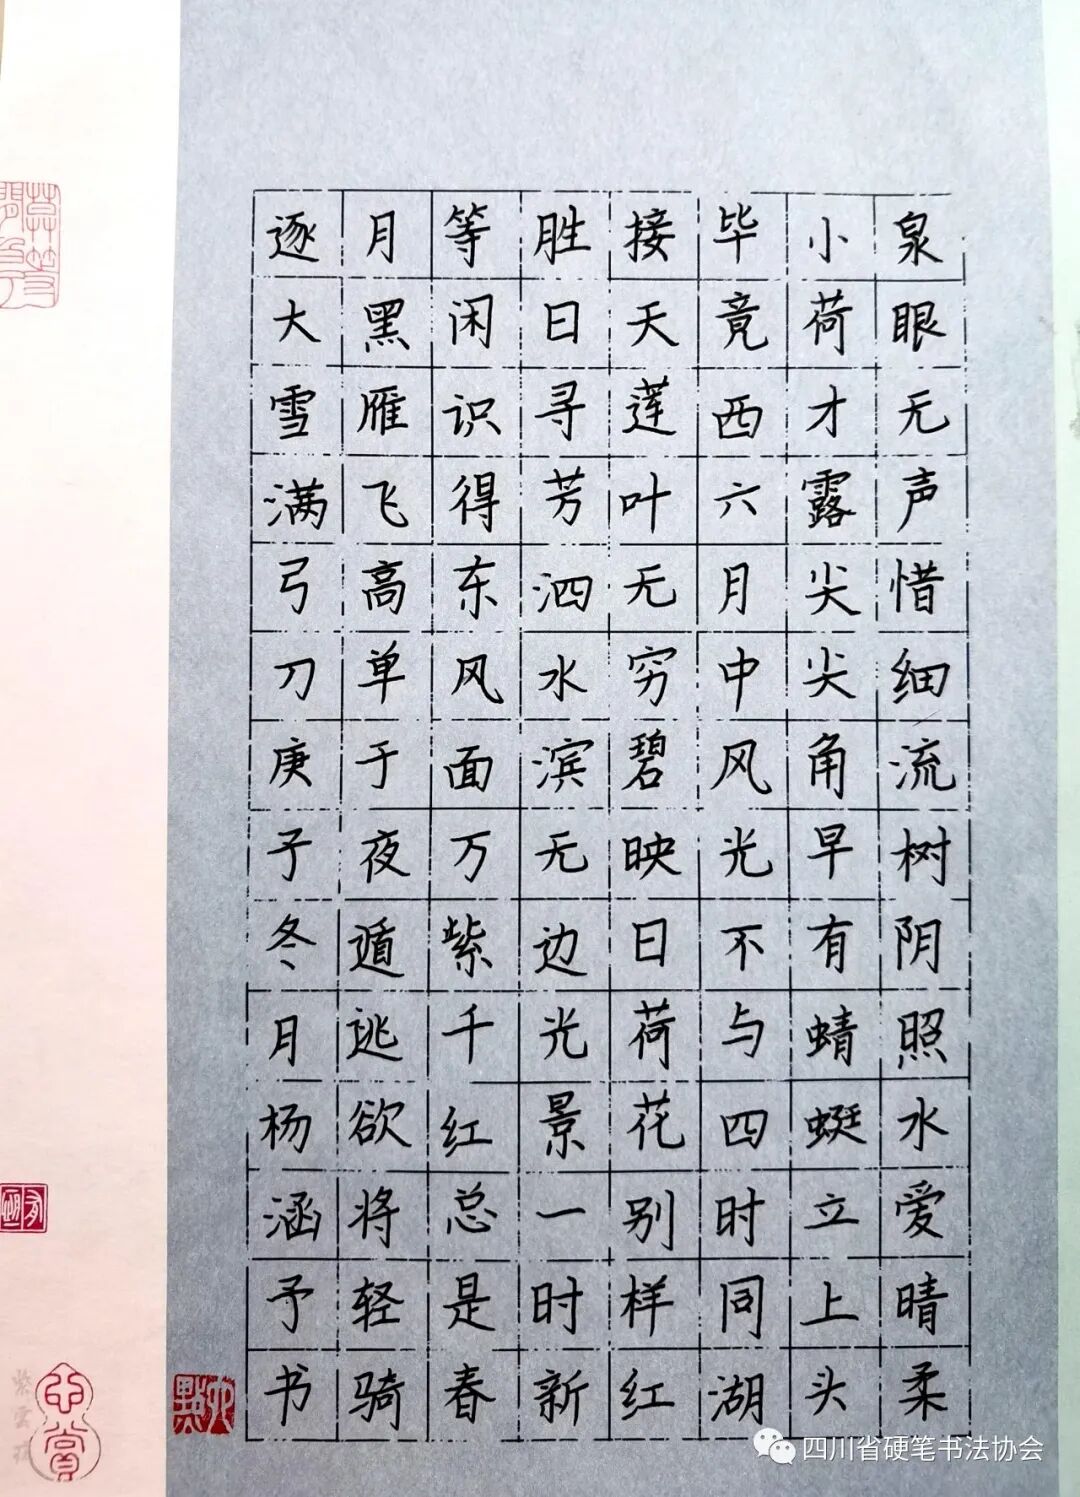 泉眼无声惜细流树阴照水爱晴柔
小荷才露尖尖角早有蜻蜓立上头
毕竟西六月中风光不与四时同湖
接天莲叶无穷碧映日荷花别样红
胜日寻芳泗水滨无边光景一时新
等闲识得东风面万紫千红总是春
月黑雁飞高单于夜遁逃欲将轻骑
逐大雪满弓刀庚子冬月杨涵予书
四川省硬笔书法协会